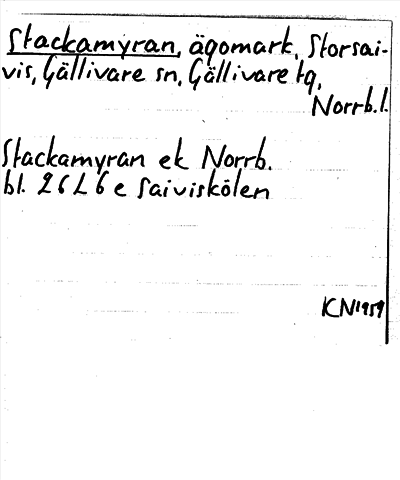 Stackamyran, ägomark, Storsai-
vis, Gällivare sn, Gällivare tg,
Norrb.l.
Stackamyran ek Norrb.
bl. 26L6e Saiviskölen
KN1959